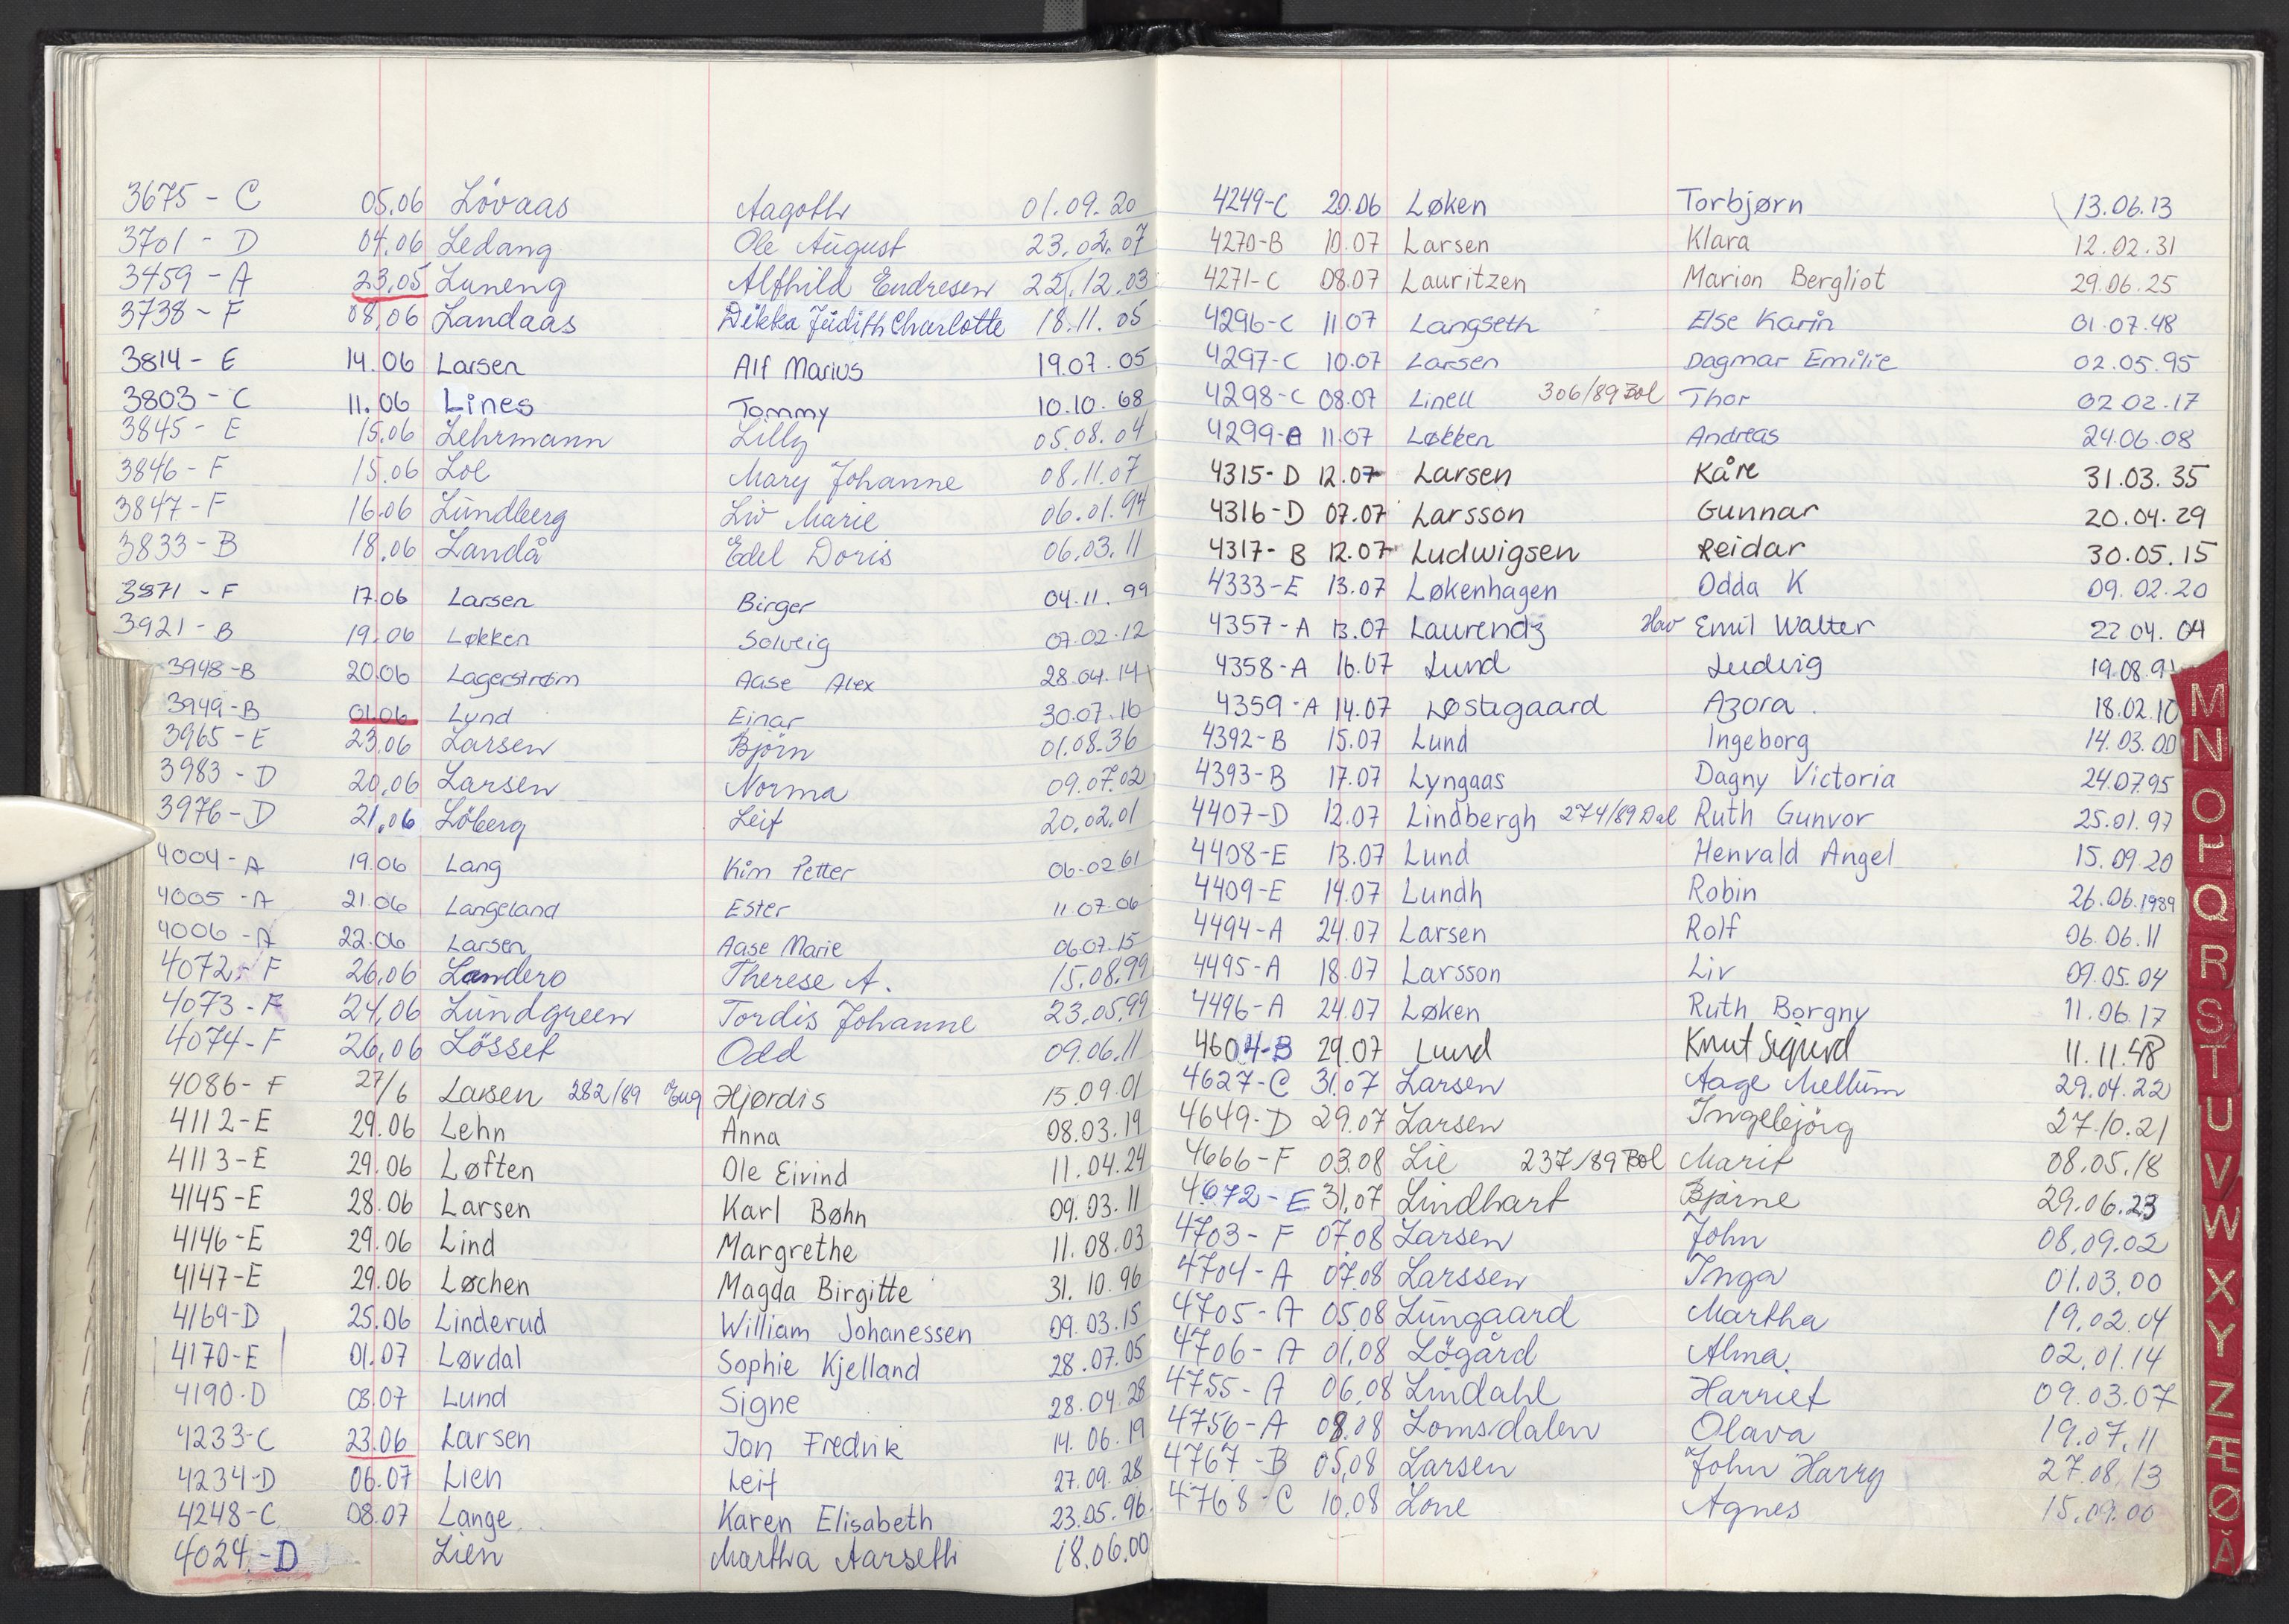 3675 - C 05.06 Lövaas Aagoth 01.09.20
3701 - D 04.06 Ledang Ole August 23.02.07
3459 - A 23.05 Luneng Alfhild Endresen 22.12.03
3738 - F 08.06 Landaas Dikka Judith Charlotte 18.11.05
3814 - E 14.06 Larsen Alf Marius 19.07.05
3803 - C 11.06 Lines Tommy 10.10.68
3845 - E 15.06 Lehrmann Lilly 05.08.04
3846 - F 15.06 Loe Mary Johanne 08.11.07
3847 - F 16.06 Lundberg Liv Marie 06.01.94
3833 - B 18.06 Landå Edel Doris 06.03.11
3871 - F 17.06 Larsen Birger 04.11.99
3921 - B 19.06 Løkken Solveig 07.02.12
3948 - B 20.06 Lagerstrøm Aase Alex 28.04.14
3949 - B 01.06 Lund Einar 30.07.16
3965 - E 23.06 Larsen Björn 01.08.36
3983 - D 20.06 Larsen Norma 09.07.02
3976 - D 21.06 Löberg Leif 20.02.01
4004 - A 19.06 Lang Kim Petter 06.02.61
4005 - A 21.06 Langeland Ester 11.07.06
4006 - A 22.06 Larsen Aase Marie 06.07.15
4072 - F 26.06 Landero Therese A. 15.08.99
4073 - F 24.06 Lundgreen Tordis Johanne 23.05.99
4074 - F 26.06 Lösset Odd 09.06.11
4086 - F 27/6 Larsen 282/89 Hjørdis 15.09.01
4112 - E 29.06 Lehn Anna 08.03.19
4113 - E 29.06 Løften Ole Eivind 11.04.24
4145 - E 28.06 Larsen Karl Bøhn 09.03.11
4146 - E 29.06 Lind Margrethe 11.08.03
4147 - E 29.06 Løchen Magda Birgitte 31.10.96
4169 - D 25.06 Linderud William Johanessen 09.03.15
4170 - E 01.07 Løvdal Sophie Kjelland 28.07.05
4190 - D 03.07 Lund Signe 28.04.28
4233 - C 23.06 Larsen Jon Fredrik 14.06.19
4234 - D 06.07 Lien Leif 27.09.28
4248 - C 08.07 Lange Karen Elisabeth 23.05.96
4024 - D Lien Martha Aarseth 18.06.00
4249-C 20.06 Løken Torbjørn 13.06.13
4270-B 10.07 Larsen Klara 12.02.31
4271-C 08.07 Lauritzen Marion Bergliot 29.06.25
4296-C 11.07 Langseth Else Karin 01.07.48
4297-C 10.07 Larsen Dagmar Emilie 02.05.95
4298-C 08.07 Linell 306/89 Bol Thor 02.02.17
4299-A 11.07 Løkken Andreas 24.06.08
4315-D 12.07 Larsen Kåre 31.03.35
4316-D 07.07 Larsson Gunnar 20.04.29
4317-B 12.07 Ludwigsen Reidar 30.05.15
4333-E 13.07 Løkenhagen Odda K 09.02.20
4357-A 13.07 Laurendz Hav Emil Walter 22.04.04
4358-A 16.07 Lund Ludvig 19.08.91
4359-A 14.07 Løstegaard Azora 18.02.10
4392-B 15.07 Lund Ingeborg 14.03.00
4393-B 17.07 Lyngaas Dagny Victoria 24.07.95
4407-D 12.07 Lindbergh 274/89 Ruth Gunvor 25.01.97
4408-E 13.07 Lund Henvald Angel 15.09.20
4409-E 14.07 Lundh Robin 26.06.1989
4494-A 24.07 Larsen Rolf 06.06.11
4495-A 18.07 Larsson Liv 09.05.04
4496-A 24.07 Løken Ruth Borgny 11.06.17
4604-B 29.07 Lund Knut Sigurd 11.11.48
4627-C 31.07 Larsen Aage Mellum 29.04.22
4649-D 29.07 Larsen Ingebjörg 27.10.21
4666-F 03.08 Lie 237/89 Bol Marit 08.05.18
4672-E 31.07 Lindhart Bjarne 29.06.23
4703-F 07.08 Larsen John 08.09.02
4704-A 07.08 Larssen Inga 01.03.00
4705-A 05.08 Lungaard Martha 19.02.04
4706-A 01.08 Lögård Alma 02.01.14
4755-A 06.08 Lindahl Harriet 09.03.07
4756-A 08.08 Lomsdalen Olava 19.07.11
4767-B 05.08 Larsen John Harry 27.08.13
4768-C 10.08 Lone Agnes 15.09.00
M
N
O
P
Q
R
S
T
U
V
W
X
Y
Z
Æ
Ø
Å